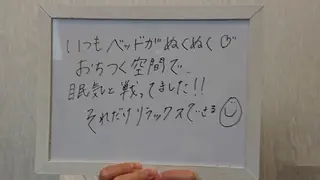 いつもベッドがぬくぬく♡
おちつく空間で、
眠気と戦ってました!!
それだけリラックスできる☺